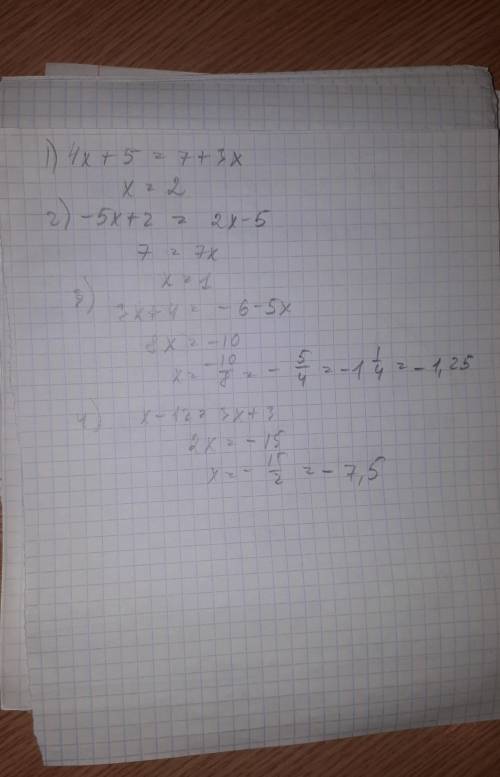 1) 4x + 5 = 7 + 3x
x = 2
2) -5x + 2 = 2x - 5
7 = 7x
x = 1
3) 3x + 4 = - 6 - 5x
8x = -10
x = -10/8 = - 5/4 = -1 1/4 = - 1,25
4) x - 12 = 3x + 3
2x = -15
x = - 15/2 = - 7,5